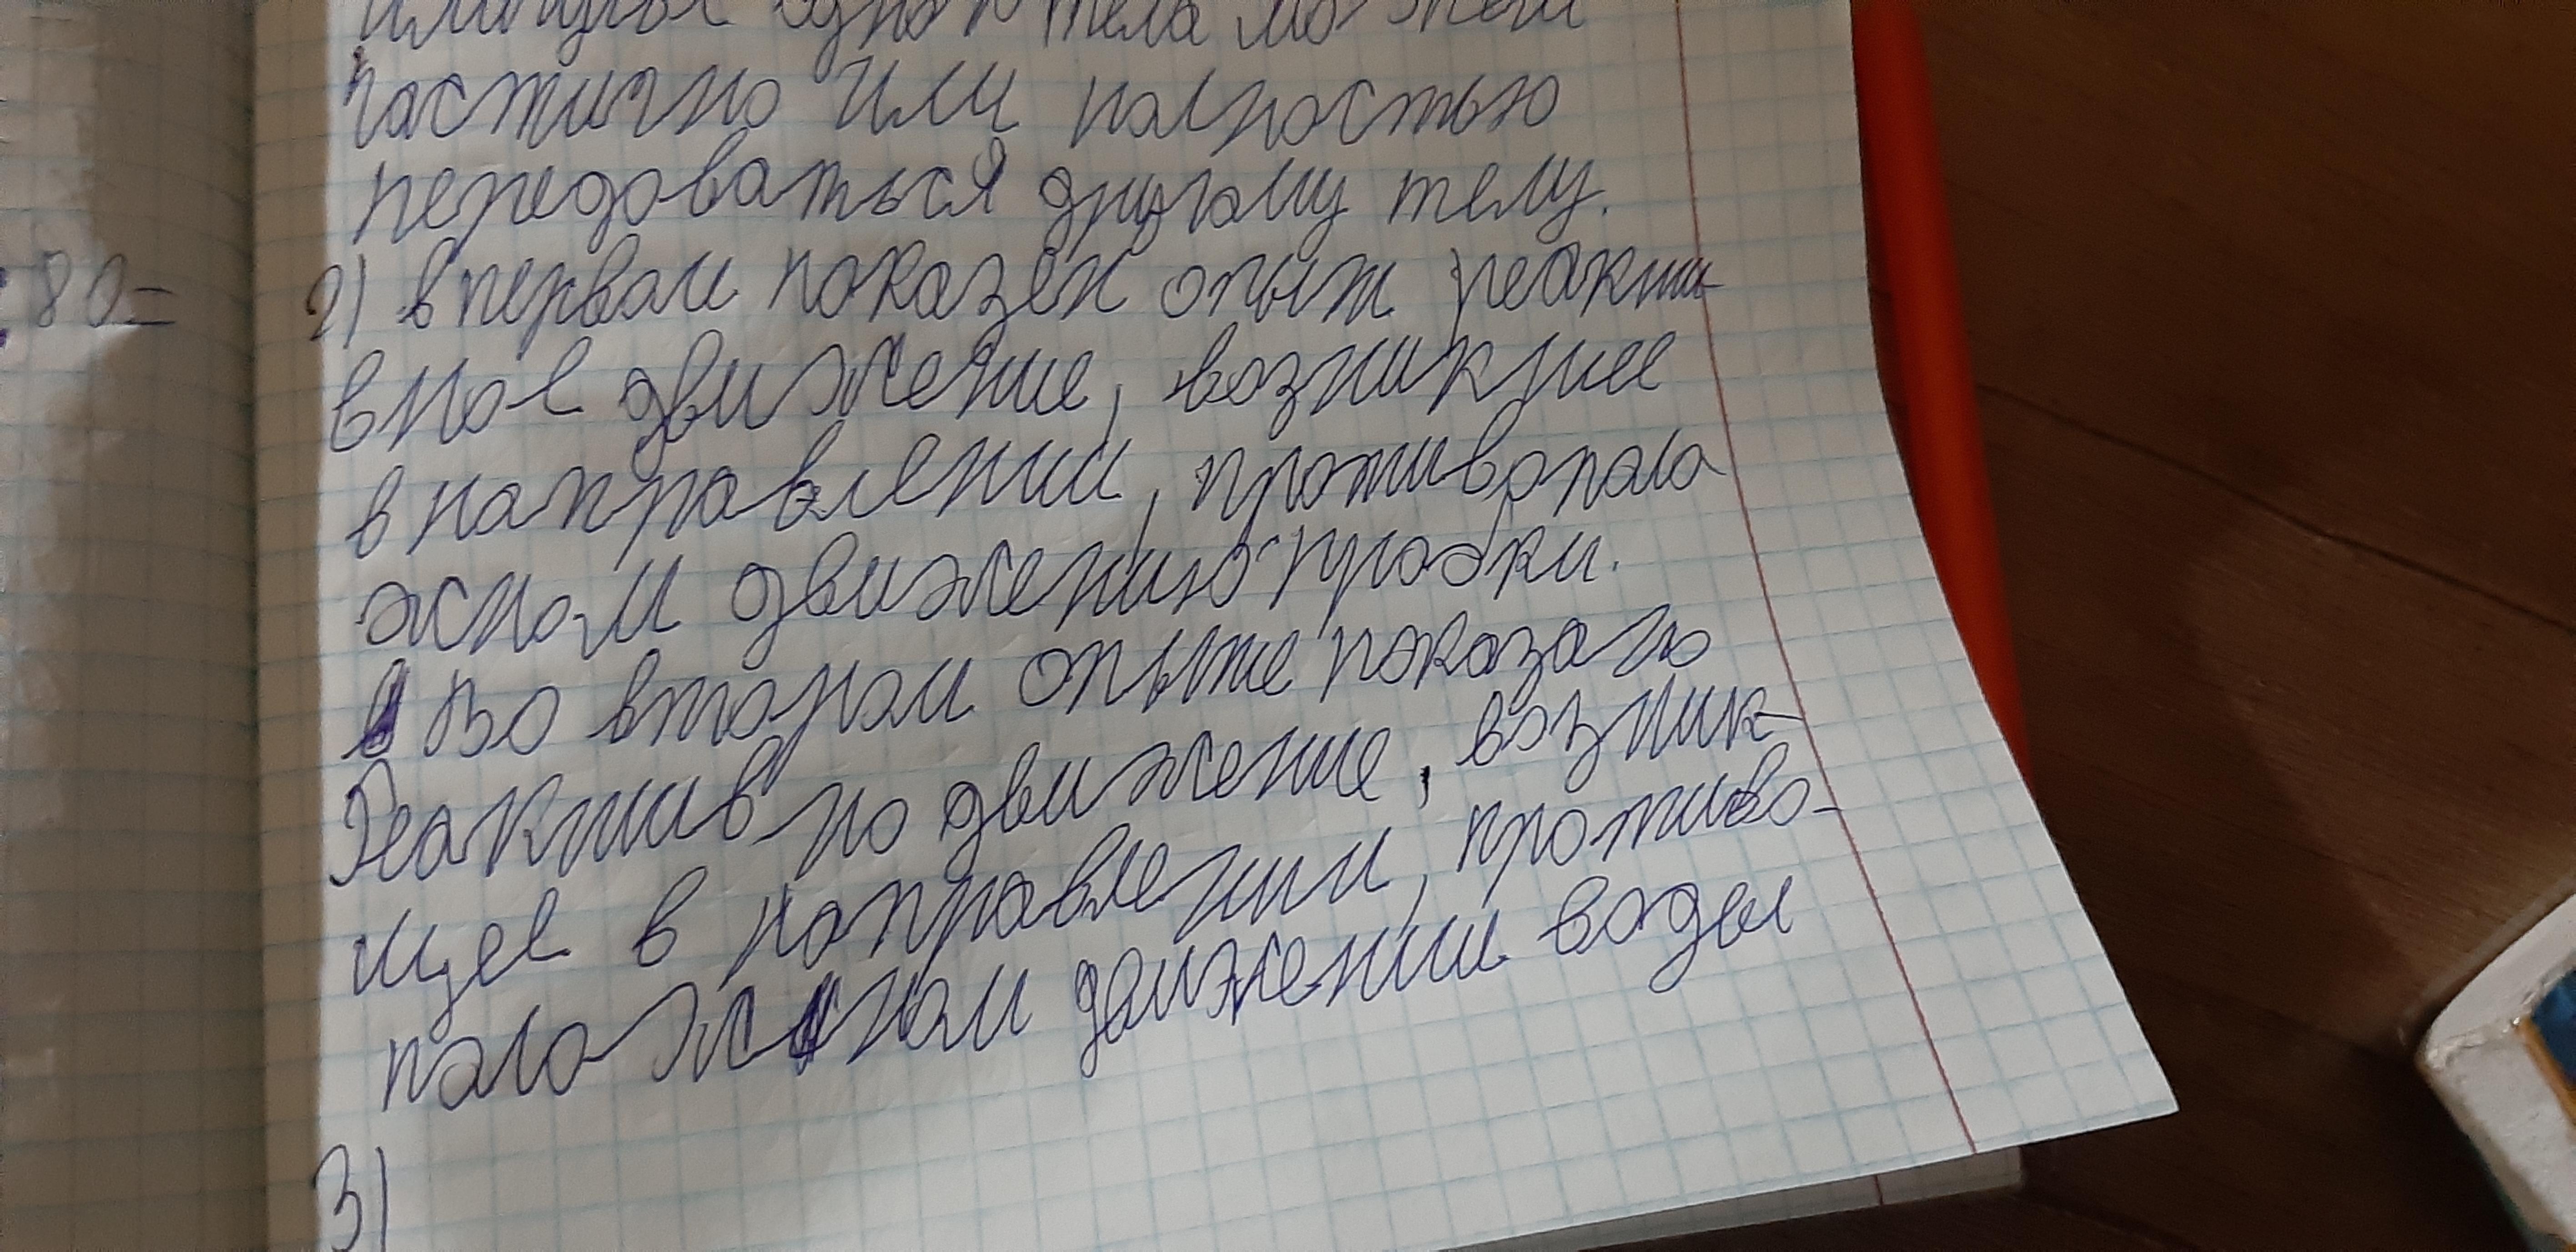 импульс одного тела может
частично или полностью
передоваться другому телу.
:80=
2) в первом показен опыт реакти
вное движение, возникшее
в направлении, противополо
жном движению пробки.
Во втором опыте показало
Реактивно движение, возник-
щее в направлении, противо-
положном движении воды
3)